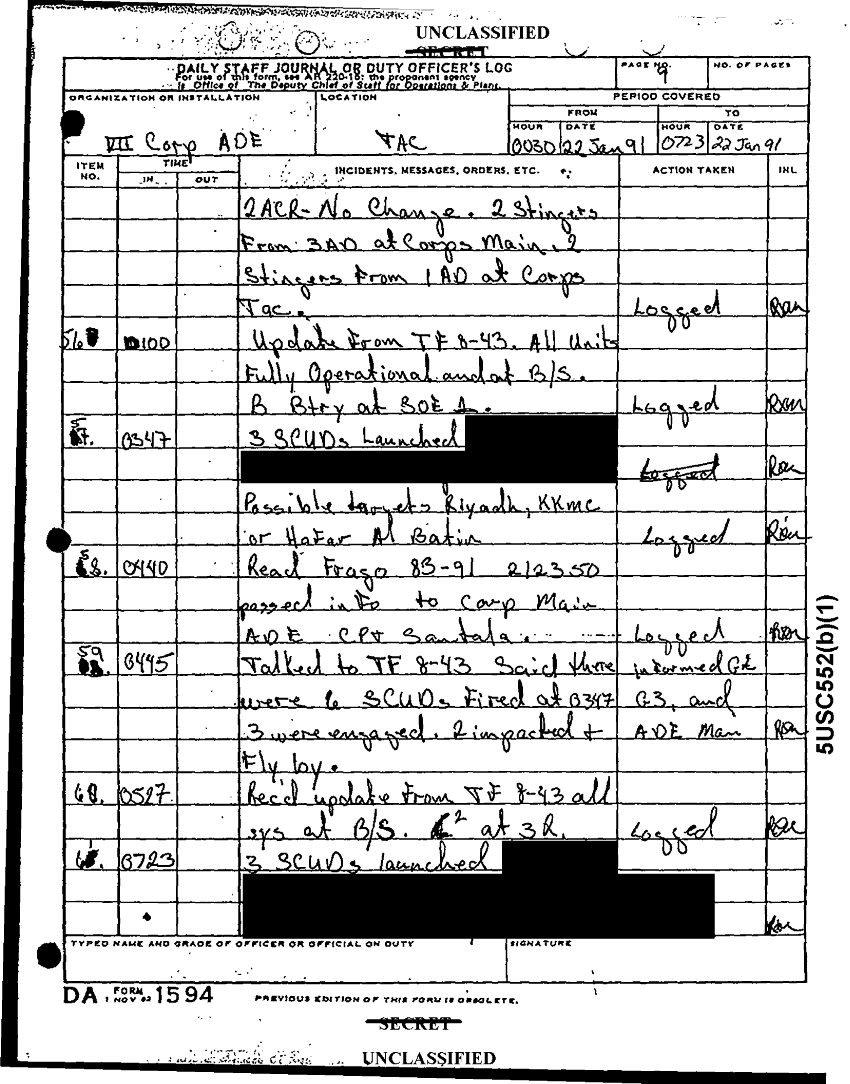 UNCLASSIFIED
SECRET
DAILY STAFF JOURNAL OR DUTY OFFICER'S LOG
For use of this form, see AR 220-15; the proponent agency
is Office of The Deputy Chief of Staff for Operations & Plans.
PAGE NO.
9
NO. OF PAGES
ORGANIZATION OR INSTALLATION
VII Corp ADE
LOCATION
TAC
PERIOD COVERED
FROM
TO
HOUR DATE HOUR DATE
0030 22 Jan 91 0723 22 Jan 91
ITEM NO. TIME IN OUT INCIDENTS, MESSAGES, ORDERS, ETC. ACTION TAKEN INL
2ACR- No Change. 2 Stingers
From 3AD at Corps Main. 2
Stingers From 1AD at Corps
Tac. Logged
56 0100 Update From TF 8-43. All Units
Fully Operational and at B/S.
B Btry at SOE 1. Logged
57. 0347 3 SCUDs Launched
Logged
Possible targets Riyadh, KKMC
or Hafar Al Batin Logged
58. 0440 Read Frago 83-91 212350
passed info to Corp Main
ADE CPT Santala. Logged
59 0445 Talked to TF 8-43 Said there informed G2
were 6 SCUDs Fired at 0347 G3, and
3 were engaged. 2 impacted + ADE Main
Fly by.
60. 0527 Rec'd update From TF 8-43 all
sys at B/S. at 3R. Logged
61. 0723 3 SCUDs launched
TYPED NAME AND GRADE OF OFFICER OR OFFICIAL ON DUTY
SIGNATURE
DA FORM 1 NOV 62 1594
PREVIOUS EDITION OF THIS FORM IS OBSOLETE.
SECRET
UNCLASSIFIED
5USC552(b)(1)